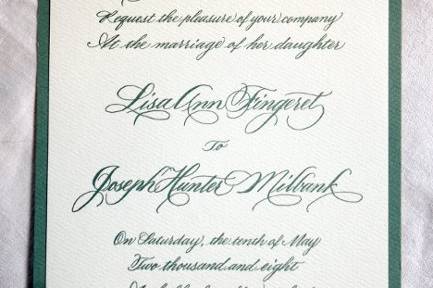 Request the pleasure of your company
At the marriage of her daughter
Lisa Ann Fingeret
To
Joseph Hunter Milbank
On Saturday, the tenth of May
Two thousand and eight